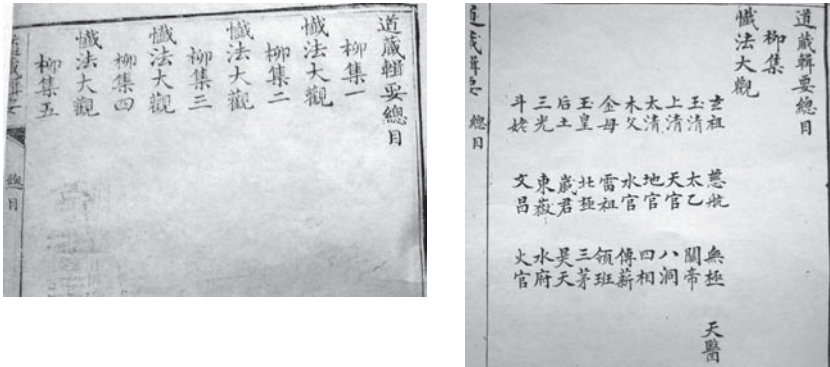 道藏輯要總目
柳集一
懺法大觀
柳集二
懺法大觀
柳集三
懺法大觀
柳集四
懺法大觀
柳集五
道藏輯要 總目
道藏輯要總目
柳集
懺法大觀
玄祖 慈航 無極 天醫
玉清 太乙 關帝
上清 天官 八洞
太清 地官 四相
木父 水官 傳薪
金母 雷祖 領班
玉皇 北極 三茅
后土 歲君 昊天
三光 東嶽 水府
斗姥 文昌 火官
道藏輯要 總目